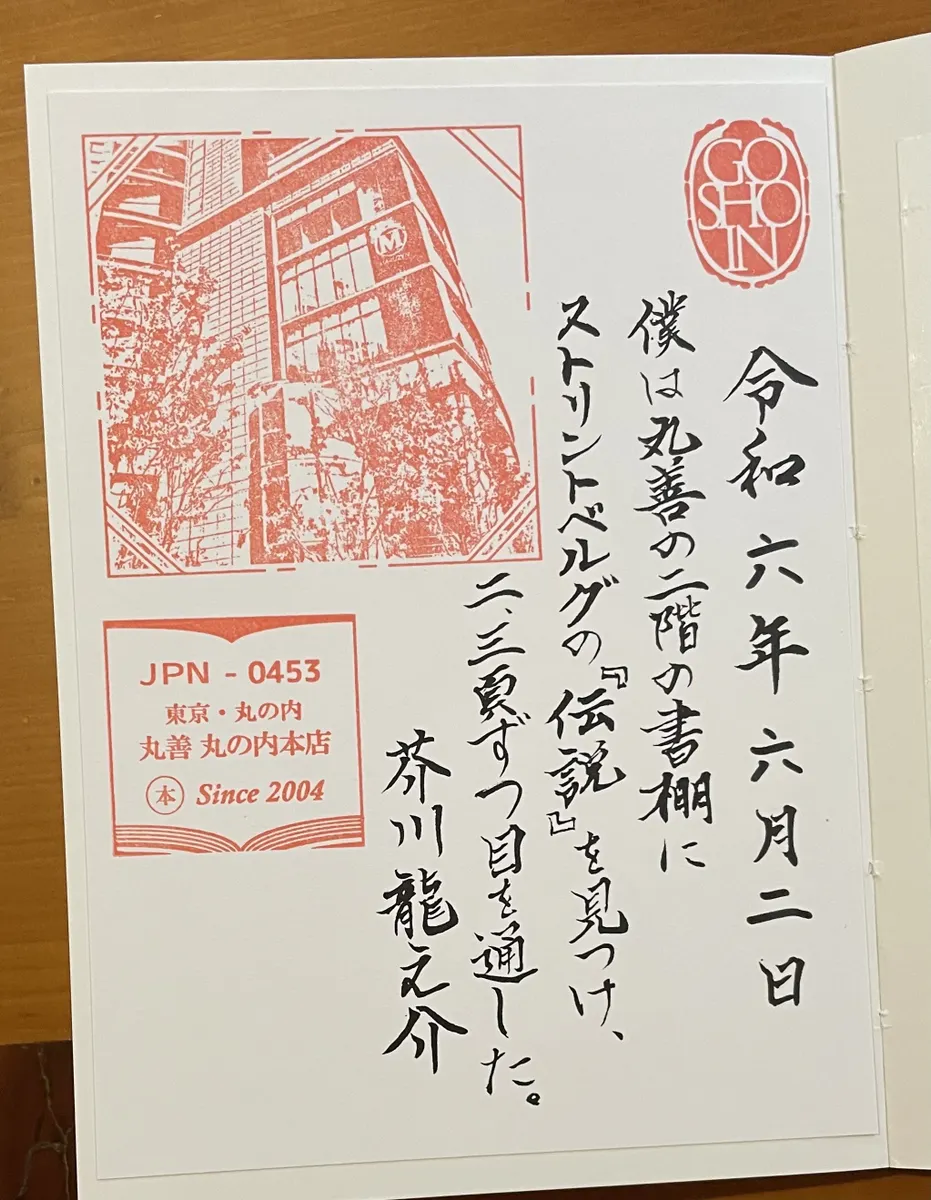 GO
SHO
IN
令和六年六月二日
僕は丸善の二階の書棚に
ストリントベルグの『伝説』を見つけ、
二、三頁ずつ目を通した。
芥川龍之介
M
JPN - 0453
東京・丸の内
丸善 丸の内本店
本 Since 2004